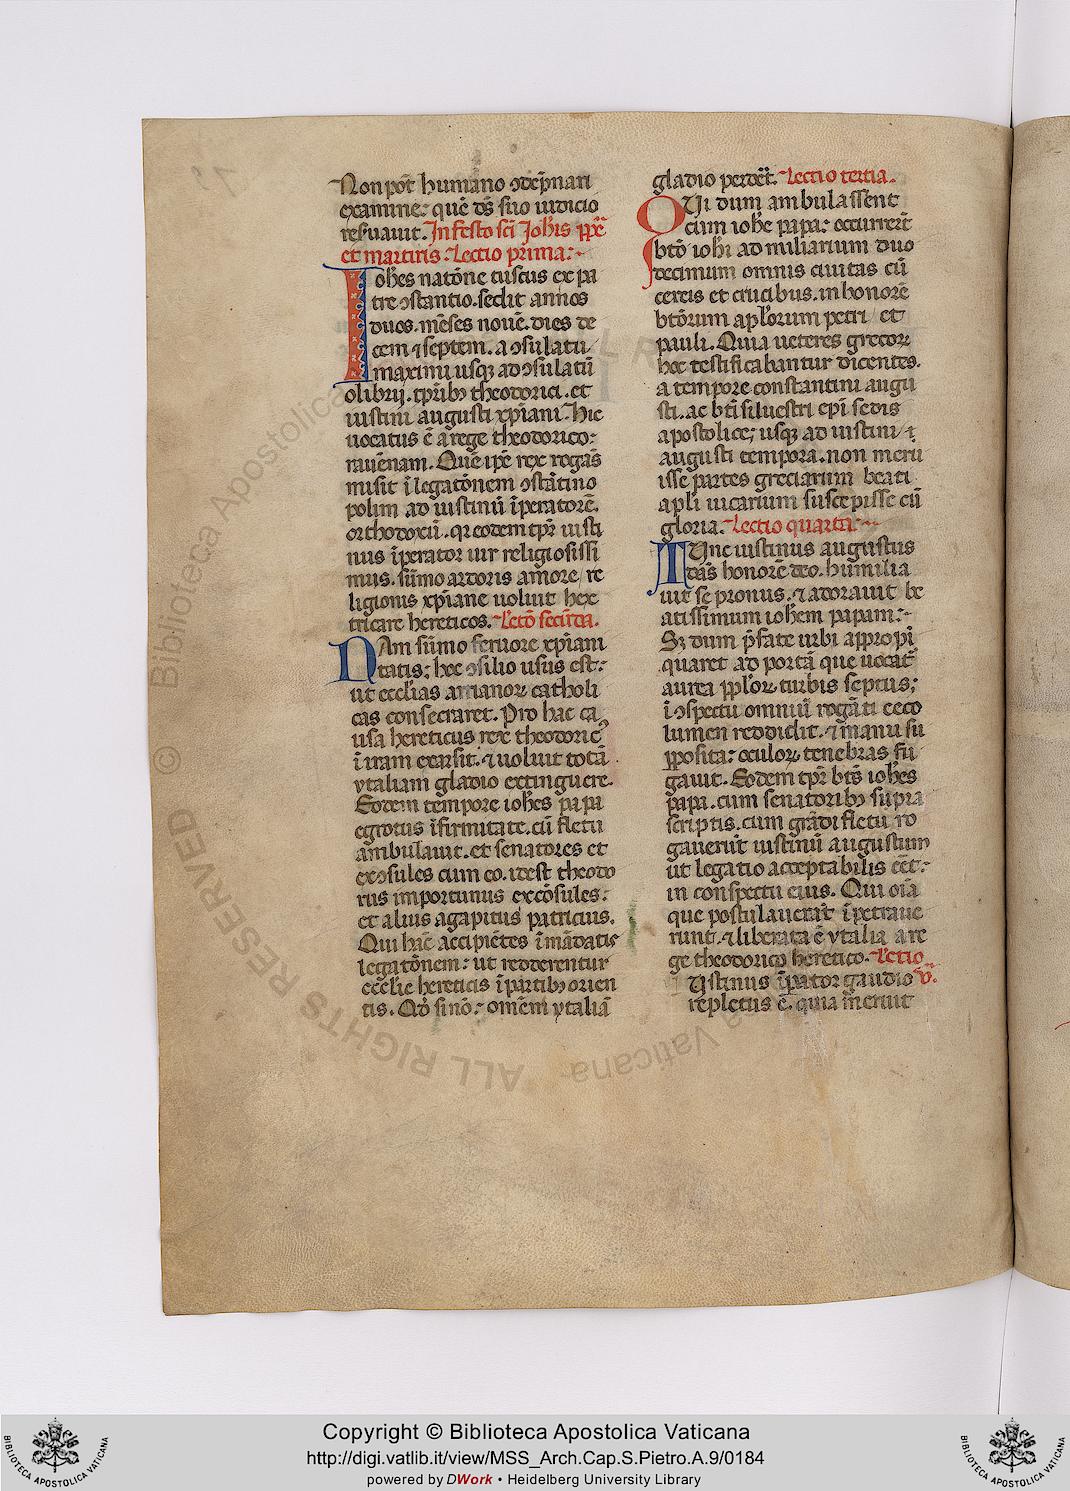 Non pōt humano ↄdēpnari
examine: quē dꝰs̄ suo iudicio
reſuauit. In festo sc̄i Joh̄is pp̄e
et martiris. Lectio prima:
Ioh̄es natōne tuscus ex pa
tre ↄstantio. sedit annos
duos. mēses nouē. dies de
cem ⁊ septem. a ↄsulatu
maximi usqꝫ ad ↄsulatū
olibrij. tp̄ribꝰ theodorici. et
iustini augusti xp̄iani. Hic
uocatus ē a rege theodorico:
rauēnam. Quē ip̄e rex rogās
misit ī legatōnem ↄstātino
polim ad iustinū īperatorē.
orthodoxū. qꝛ eodem tp̄r iusti
nus īperator uir religiosissi
mus. sūmo ardoris amore re
ligionis xp̄iane uoluit hex
tricare hereticos. Lectō secūda.
NAm sūmo feruore xp̄iani
tatis: hoc ↄsilio usus est:
ut eccl̄ias arrianoꝝ catholi
cas consecraret. Pro hac ca
usa hereticus rex theodoricꝰ
ī iram exarsit. ⁊ uoluit totā
ytaliam gladio extinguere.
Eodem tempore ioh̄es papa
egrotus īfirmitate. cū fletu
ambulauit. et senatores et
exↄsules cum eo. idest theodo
rus importunus excōsules:
et alius agapitus patricius.
Qui hāc accipiētes ī mādatis
legatōnem: ut redderentur
ecclīe hereticis ī partibꝰ orien
tis. Qd̄ sinō: omēm ytaliā
gladio perdēt. Lectio tertia.
QUi dum ambulassent
cum ioh̄e papa: occurrerīt
btō ioh̄i ad miliarium duo
decimum omnis ciuitas cū
cereis et crucibus. in honorē
btōrum apl̄orum petri et
pauli. Quia ueteres grecoꝝ
hoc testificabantur dicentes.
a tempore constantini augu
sti. ac bt̄i siluestri ep̄i sedis
apostolice; usqꝫ ad iustini
augusti tempora. non meru
isse partes greciarum beati
apl̄i uicarium suscepisse cū
gloria. Lectio quarta:
TUnc iustinus augustus
dās honorē deo. humilia
uit se pronus. ⁊ adorauit be
atissimum ioh̄em papam:
Sꝫ dum p̄fate urbi appropī
quaret ad portā que uocat̄
aurea pp̄loꝝ turbis septus;
ī ↄspectu omniū rogāti ceco
lumen reddidit. ⁊ manu su
pposita: oculoꝝ tenebras fu
gauit. Eodem tp̄r bt̄s ioh̄es
papa. cum senatoribꝰ supra
scriptis. cum grādi fletu ro
gauerūt iustinū augustum
ut legatio acceptabilis eēt:
in conspectu eius. Qui oīa
que postulauerāt īpetraue
runt. ⁊ liberata ē ytalia a re
ge theodorico heretico. Lectio
Ustinus īpator gaudio v̄.
repletus ē. quia meruit
Copyright © Biblioteca Apostolica Vaticana
http://digi.vatlib.it/view/MSS_Arch.Cap.S.Pietro.A.9/0184
powered by DWork • Heidelberg University Library
BIBLIOTECA APOSTOLICA VATICANA
BIBLIOTECA APOSTOLICA VATICANA
© Biblioteca Apostolica Vaticana ALL RIGHTS RESERVED